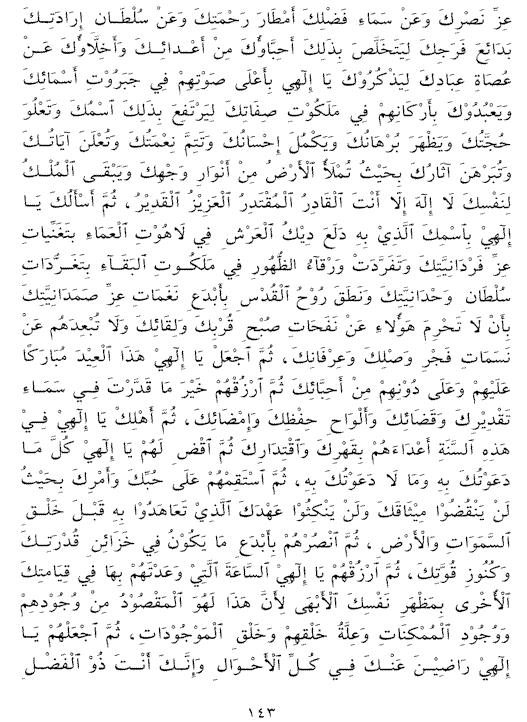 عِزِّ نَصْرِكَ وَعَنْ سَمَاءِ فَضْلِكَ أَمْطَارَ رَحْمَتِكَ وَعَنْ سُلْطَانِ إِرَادَتِكَ
بَدَائِعَ فَرَجِكَ لِيَتَخَلَّصَ بِذَلِكَ أَحِبَّاؤُكَ مِنْ أَعْدَائِكَ وَأَخِلَّاؤُكَ عَنْ
عُصَاةِ عِبَادِكَ لِيَذْكُرُوْكَ يَا إِلَهِي بِأَعْلَى صَوْتِهِمْ فِي جَبَرُوْتِ أَسْمَائِكَ
وَيَعْبُدُوْكَ بِأَرْكَانِهِمْ فِي مَلَكُوْتِ صِفَاتِكَ لِيَرْتَفِعَ بِذَلِكَ ٱسْمُكَ وَتَعْلُوَ
حُجَّتُكَ وَيَظْهَرَ بُرْهَانُكَ وَيَكْمُلَ إِحْسَانُكَ وَتَتِمَّ نِعْمَتُكَ وَتُعْلَنَ آيَاتُكَ
وَتُبَرْهَنَ آثَارُكَ بِحَيْثُ تُمْلَأُ ٱلْأَرْضُ مِنْ أَنْوَارِ وَجْهِكَ وَيَبْقَى ٱلْمُلْكُ
لِنَفْسِكَ لَا إِلَهَ إِلَّا أَنْتَ ٱلْقَادِرُ ٱلْمُقْتَدِرُ ٱلْعَزِيْزُ ٱلْقَدِيْرُ، ثُمَّ أَسْأَلُكَ يَا
إِلَهِيْ بِٱسْمِكَ ٱلَّذِيْ بِهِ دَلَعَ دِيْكُ ٱلْعَرْشِ فِي لَاهُوْتِ ٱلْعَمَاءِ بِتَغَنِّيَاتِ
عِزِّ فَرْدَانِيَّتِكَ وَتَغَرَّدَتْ وَرْقَاءُ ٱلظُّهُورِ فِي مَلَكُوتِ ٱلْبَقَاءِ بِتَغَرُّدَاتِ
سُلْطَانِ وَحْدَانِيَّتِكَ وَنَطَقَ رُوْحُ ٱلْقُدْسِ بِأَبْدَعِ نَغَمَاتِ عِزِّ صَمَدَانِيَّتِكَ
بِأَنْ لَا تَحْرِمَ هَؤُلَاءِ عَنْ نَفَحَاتِ صُبْحِ قُرْبِكَ وَلِقَائِكَ وَلَا تُبْعِدَهُم عَنْ
نَسَمَاتِ فَجْرِ وَصْلِكَ وَعِرْفَانِكَ، ثُمَّ ٱجْعَلْ يَا إِلَهِيْ هَذَا ٱلْعِيْدَ مُبَارَكًا
عَلَيْهِمْ وَعَلَى دُوْنِهِمْ مِنْ أَحِبَّائِكَ ثُمَّ ٱرْزُقْهُمْ خَيْرَ مَا قَدَّرْتَ فِي سَمَاءِ
تَقْدِيْرِكَ وَقَضَائِكَ وَأَلْوَاحِ حِفْظِكَ وَإِمْضَائِكَ، ثُمَّ أَهْلِكْ يَا إِلَهِيْ فِيْ
هَذِهِ ٱلسَّنَةِ أَعْدَاءَهُمْ بِقَهْرِكَ وَٱقْتِدَارِكَ ثُمَّ ٱقْضِ لَهُمْ يَا إِلَهِيْ كُلَّ مَا
دَعَوْتُكَ بِهِ وَمَا لَا دَعَوْتُكَ بِهِ، ثُمَّ ٱسْتَقِمْهُمْ عَلَى حُبِّكَ وَأَمْرِكَ بِحَيْثُ
لَنْ يَنْقُضُوْا مِيْثَاقَكَ وَلَنْ يَنْكُثُوْا عَهْدَكَ ٱلَّذِيْ تَعَاهَدُوْا بِهِ قَبْلَ خَلْقِ
ٱلسَّمَوَاتِ وَٱلْأَرْضِ، ثُمَّ ٱنْصُرْهُمْ بِأَبْدَعِ مَا يَكُوْنُ فِي خَزَائِنِ قُدْرَتِكَ
وَكُنُوزِ قُوَّتِكَ، ثُمَّ ٱرْزُقْهُمْ يَا إِلَهِيْ ٱلسَّاعَةَ ٱلَّتِيْ وَعَدْتَهُمْ بِهَا فِي قِيَامَتِكَ
ٱلْأُخْرَى بِمَظْهَرِ نَفْسِكَ ٱلْأَبْهَى لِأَنَّ هَذَا لَهُوَ ٱلْمَقْصُوْدُ مِنْ وُجُوْدِهِمْ
وَوُجُوْدِ ٱلْمُمْكِنَاتِ وَعِلَّةُ خَلْقِهِمْ وَخَلْقِ ٱلْمَوْجُوْدَاتِ، ثُمَّ ٱجْعَلْهُمْ يَا
إِلَهِيْ رَاضِيْنَ عَنْكَ فِي كُلِّ ٱلْأَحْوَالِ وَإِنَّكَ أَنْتَ ذُوْ ٱلْفَضْلِ
١٤٣